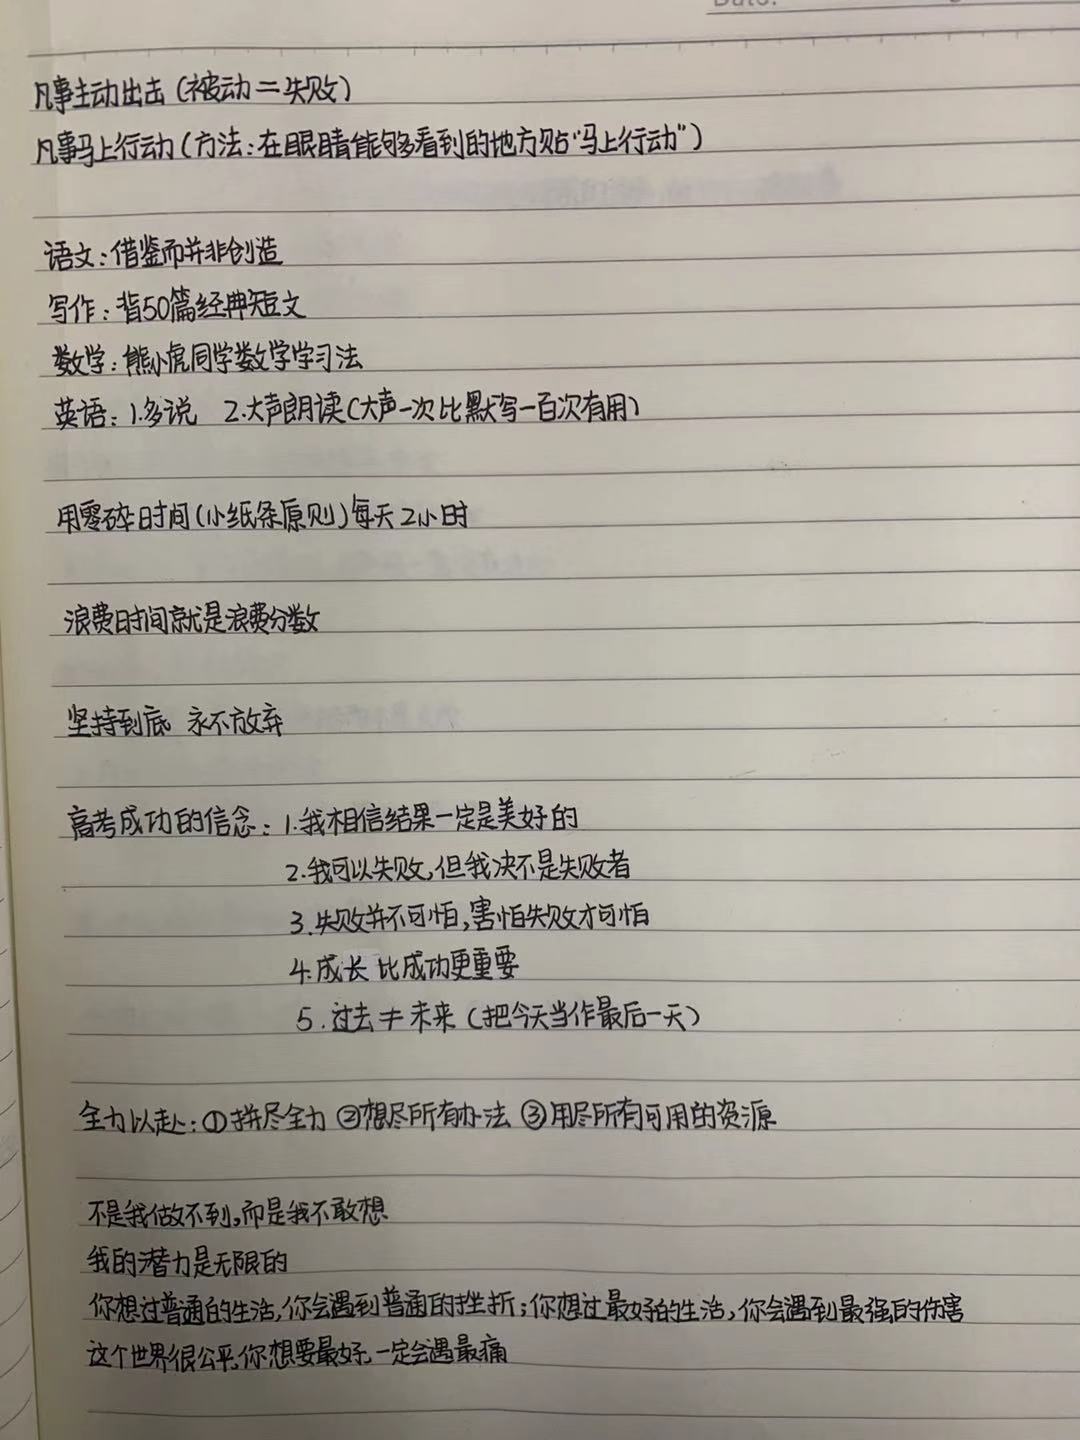 Date:
凡事主动出击(被动=失败)
凡事马上行动(方法:在眼睛能够看到的地方贴“马上行动”)
语文:借鉴而并非创造
写作:背50篇经典短文
数学:熊小虎同学数学学习法
英语:1.多说 2.大声朗读(大声一次比默写一百次有用)
用零碎时间(小纸条原则)每天2小时
浪费时间就是浪费分数
坚持到底 永不放弃
高考成功的信念:1.我相信结果一定是美好的
2.我可以失败,但我决不是失败者
3.失败并不可怕,害怕失败才可怕
4.成长比成功更重要
5.过去≠未来(把今天当作最后一天)
全力以赴:①拼尽全力 ②想尽所有办法 ③用尽所有可用的资源
不是我做不到,而是我不敢想
我的潜力是无限的
你想过普通的生活,你会遇到普通的挫折;你想过最好的生活,你会遇到最强的伤害
这个世界很公平,你想要最好,一定会遇最痛